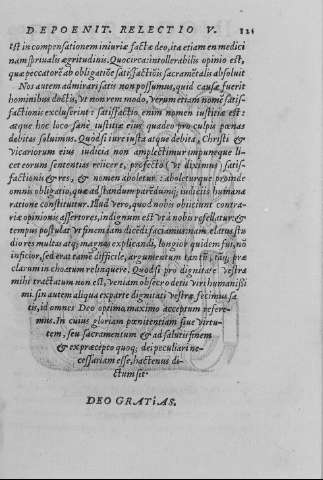 DE POENIT. RELECTIO V. 121
est in compensationem iniuriæ factæ deo, ita etiam en medici
nam spiritualis ægritudinis. Quocirca intollerabilis opinio est,
quæ peccatorē ab obligatiōe satisfactiōis sacramētalis absoluit
Nos autem admirari satis non possumus, quid causæ fuerit
hominibus doctis, vt non rem modo, verum etiam nomē satis-
factionis excluserint: satisfactio enim nomen iustitiæ est:
atque hoc loco sane iustitiæ eius quadeo pro culpis pœnas
debitas soluimus. Quòd si iure iusta atque debita, Christi &
vicariorum eius iudicia non amplectimur impuneque li-
cet eorum sententias reiicere, profecto (vt diximus) satis-
factionis & res, & nomen aboletur: aboleturque proinde
omnis obligatio, quæ ad standum parēdumq; iudiciis humana
ratione constituitur. Illud vero, quod nobis obiiciunt contra-
riæ opinionis assertores, indignum est vt à nobo refellatur: &
tempus postulat vt finem iam dicēdi faciamus: nam elatus stu
dio res multas atq; magnas explicandi, longior quidem fui, nō
inficior, sed erat tame difficile, argumentum tantū, tāq; præ
clarum inchoatum relinquere. Quod si pro dignitate vestra
mihi tractatum non est, veniam obsecro detis viri humaniss
mi. sin autem aliqua ex parte dignitati vestræ fecimus sa
tis, id omnes Deo optimo maximo acceptum refere-
mus. In cuius gloriam pœnitentiam siue virtu-
tem, seu sacramentum & ad salutis finem
& ex præcepto quoq; dei peculiari ne-
cessariam esse, hactenus di-
ctum sit.
DEO GRATIAS.